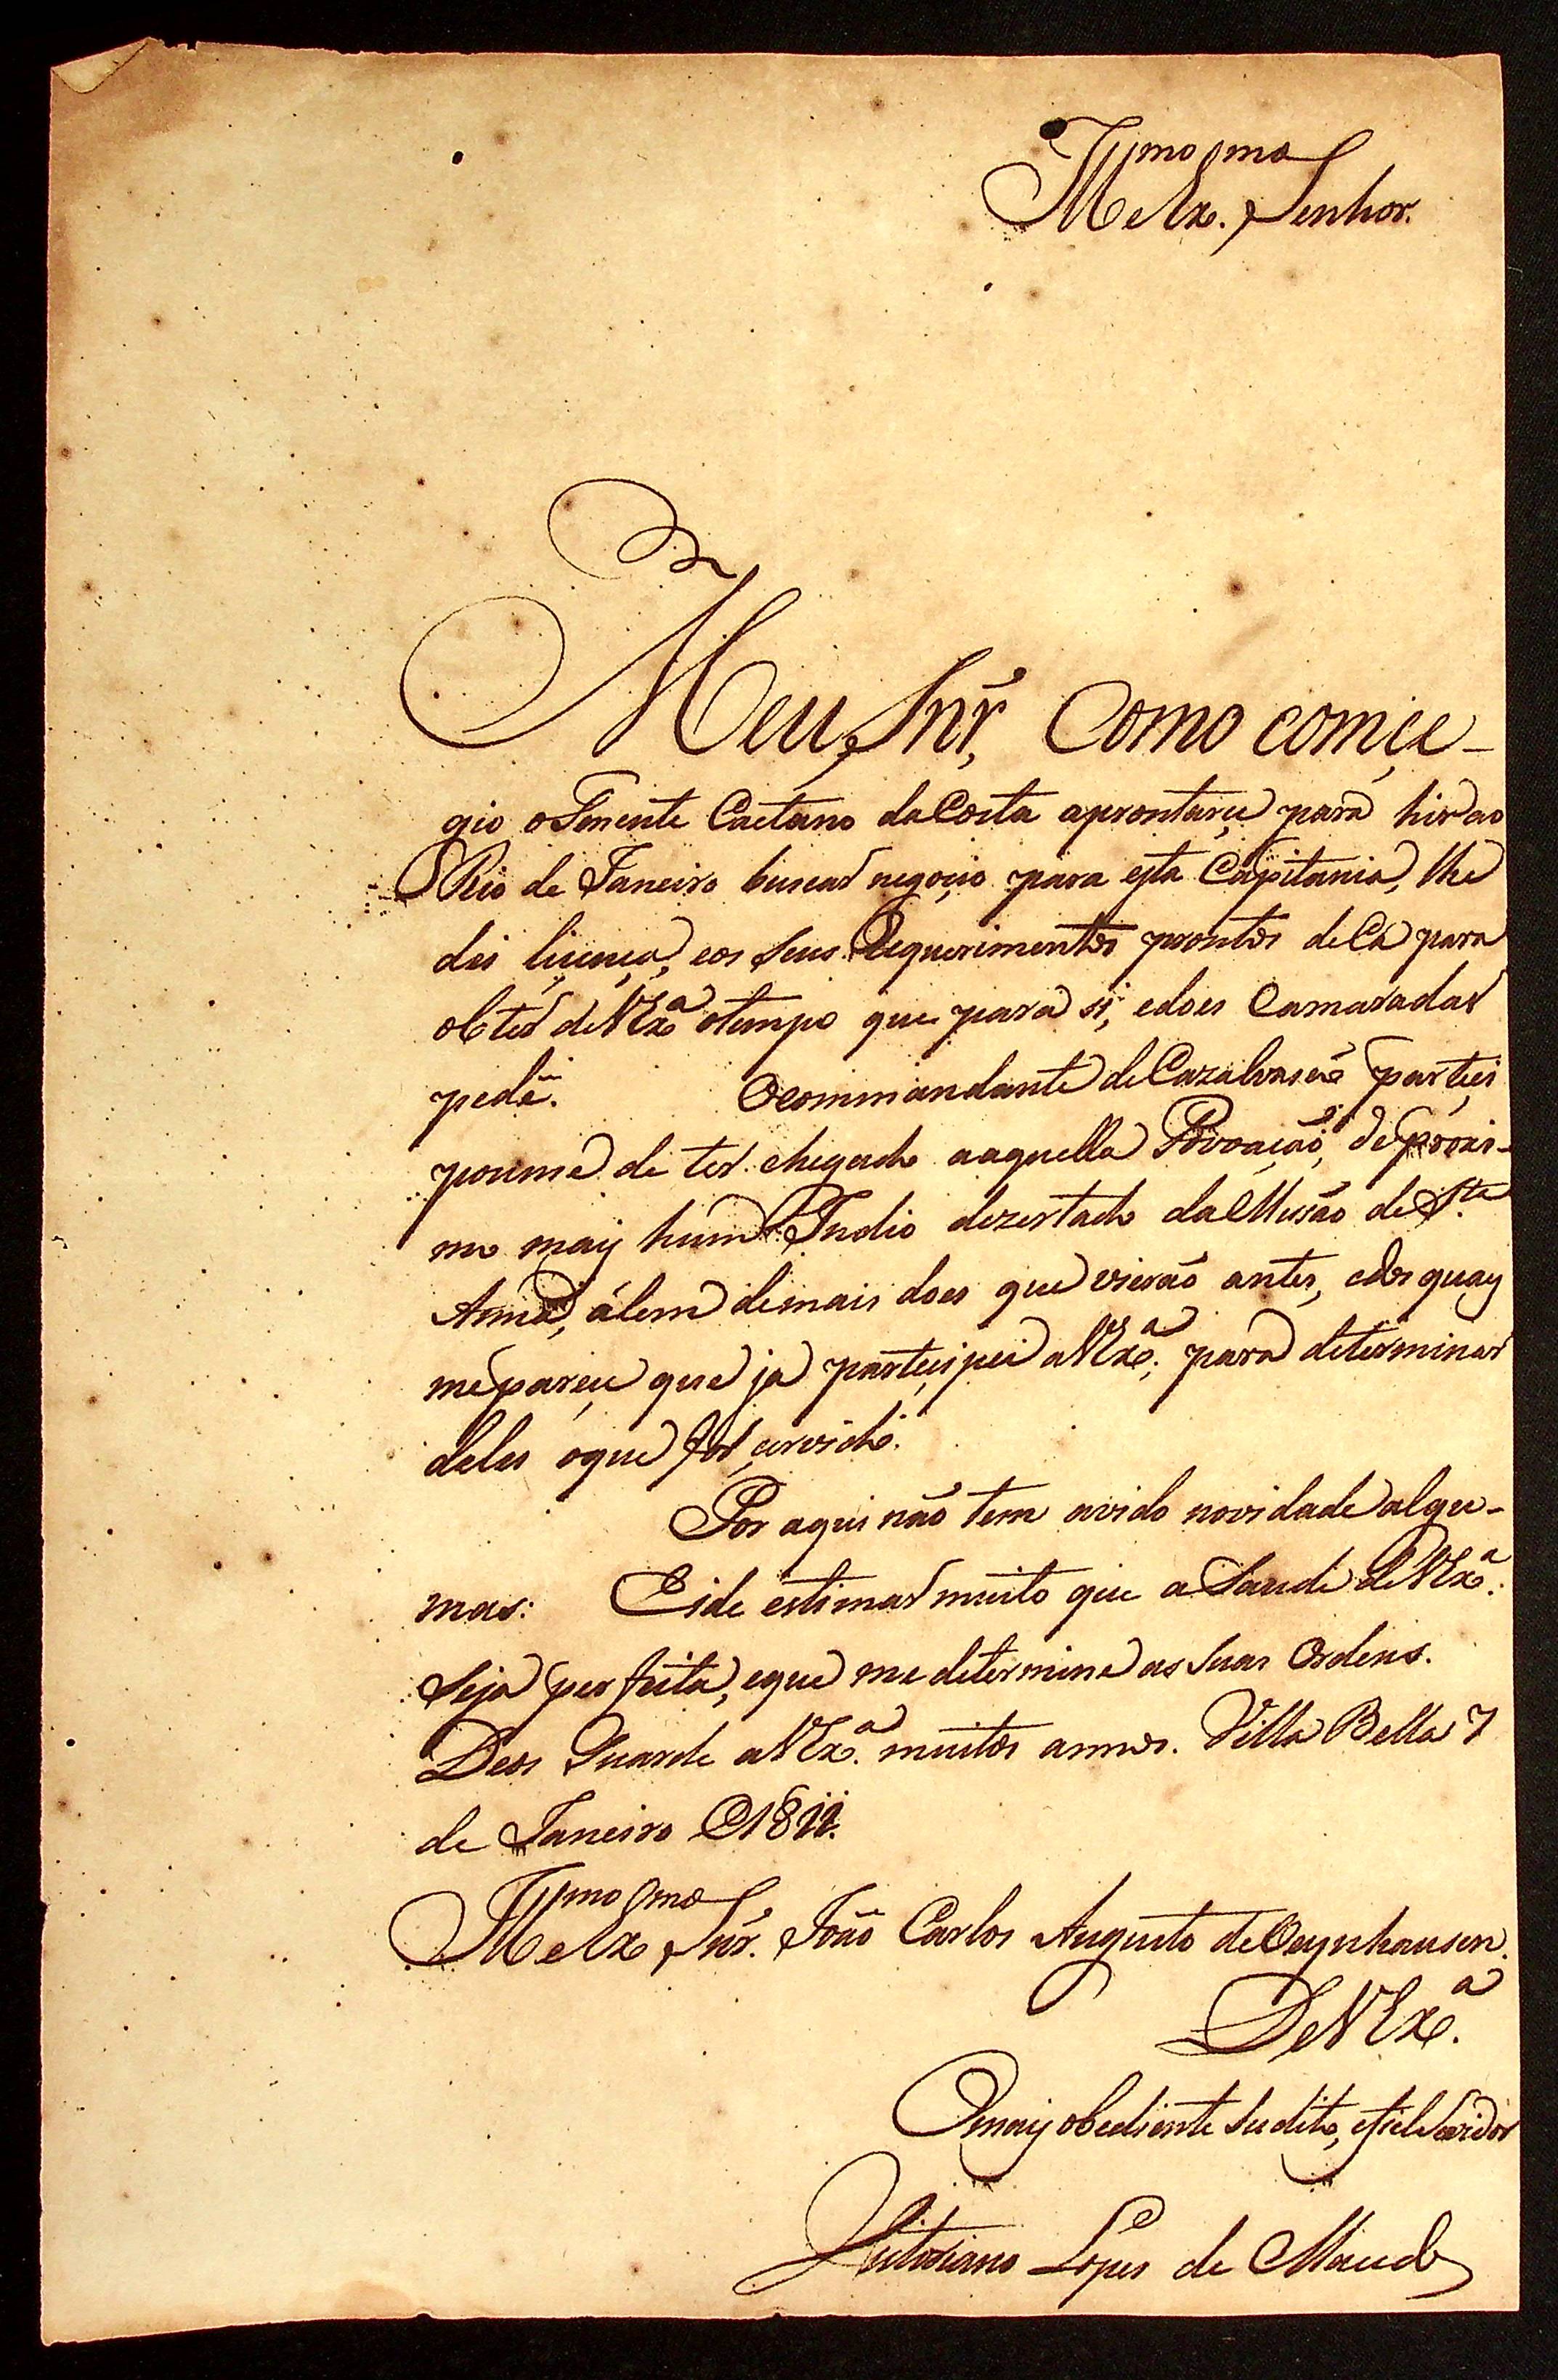 Ill.mo e Ex.mo Senhor.
Meu Snr, Como comçe-
gio o Tenente Caetano da Costa aprontarçe para hir ao
Rio de Janeiro buscar negoçio para esta Capitania, lhe
dei liçença, e os seus Requerimentos prontos de Ca para
obter de VEx.a o tempo que para si, e does Camaradas
pede. O commandante de Cazalvasco partiçi
poume de ter chegado aaquella Povoação, de proxi-
mo maiz hum Indio dezertado da Missão de S.ta
Anna, álem de mais does que vierão antes, e dos quaiz
me pareçe que ja partiçipei a VEx.a, para determinar
deles o que for çervido.
Por aqui não tem avido novidade algu-
mas: Eide estimar muito que a Saude de VEx.a
Seja perfeita, e que me determine as Suas Ordens.
Deos Guarde a VEx.a muitos annos. Villa Bella 7
de Janeiro @ 1811.
Ill.mo e Ex.mo Snr. João Carlos Augusto de Oeynhausen.
De VEx.a
O maiz obediente Sudito, e fiel Servidor
Victoriano Lopes de Maced